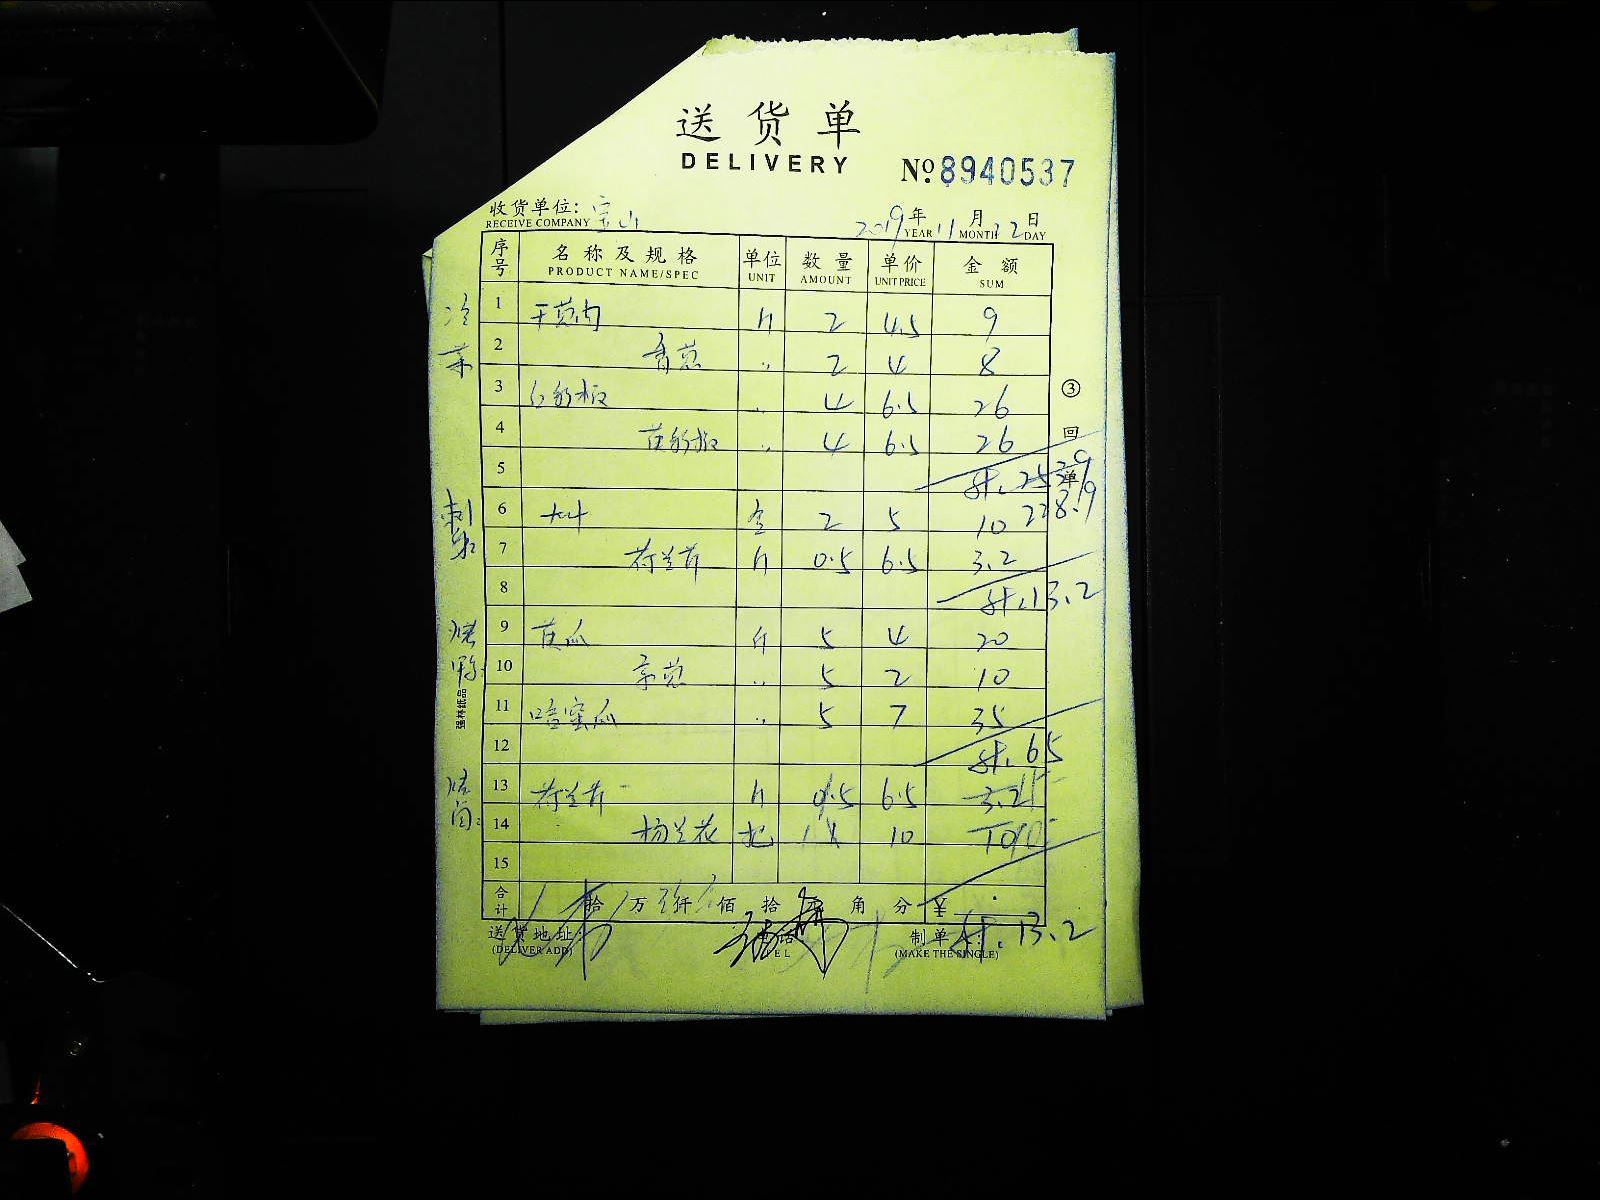 送货单
DELIVERY
№ 8940537
收货单位: 宝山
RECEIVE COMPANY
2019年11月22日
YEAR MONTH DAY
序号 名称及规格 单位 数量 单价 金额
PRODUCT NAME/SPEC UNIT AMOUNT UNIT PRICE SUM
冷菜
1 干葱肉 斤 2 4.5 9
2 香葱 〃 2 4 8
3 红彩椒 〃 4 6.5 26
4 黄彩椒 〃 4 6.5 26
5
③回单
228.9
刺身
6 大叶 盒 2 5 10
7 荷兰芹 斤 0.5 6.5 3.2
8 计.13.2
烧鸭
9 黄瓜 斤 5 4 20
10 京葱 〃 5 2 10
11 哈蜜瓜 〃 5 7 35
12 计.65
强林纸品
13 荷兰芹 斤 0.5 6.5
14 杨兰花 把 1 10
15
合计 拾 万 仟 佰 拾 元 角 分 ¥
计.13.2
送货地址:
(DELIVER ADD)
电话
TEL
制单人:
(MAKE THE SINGLE)